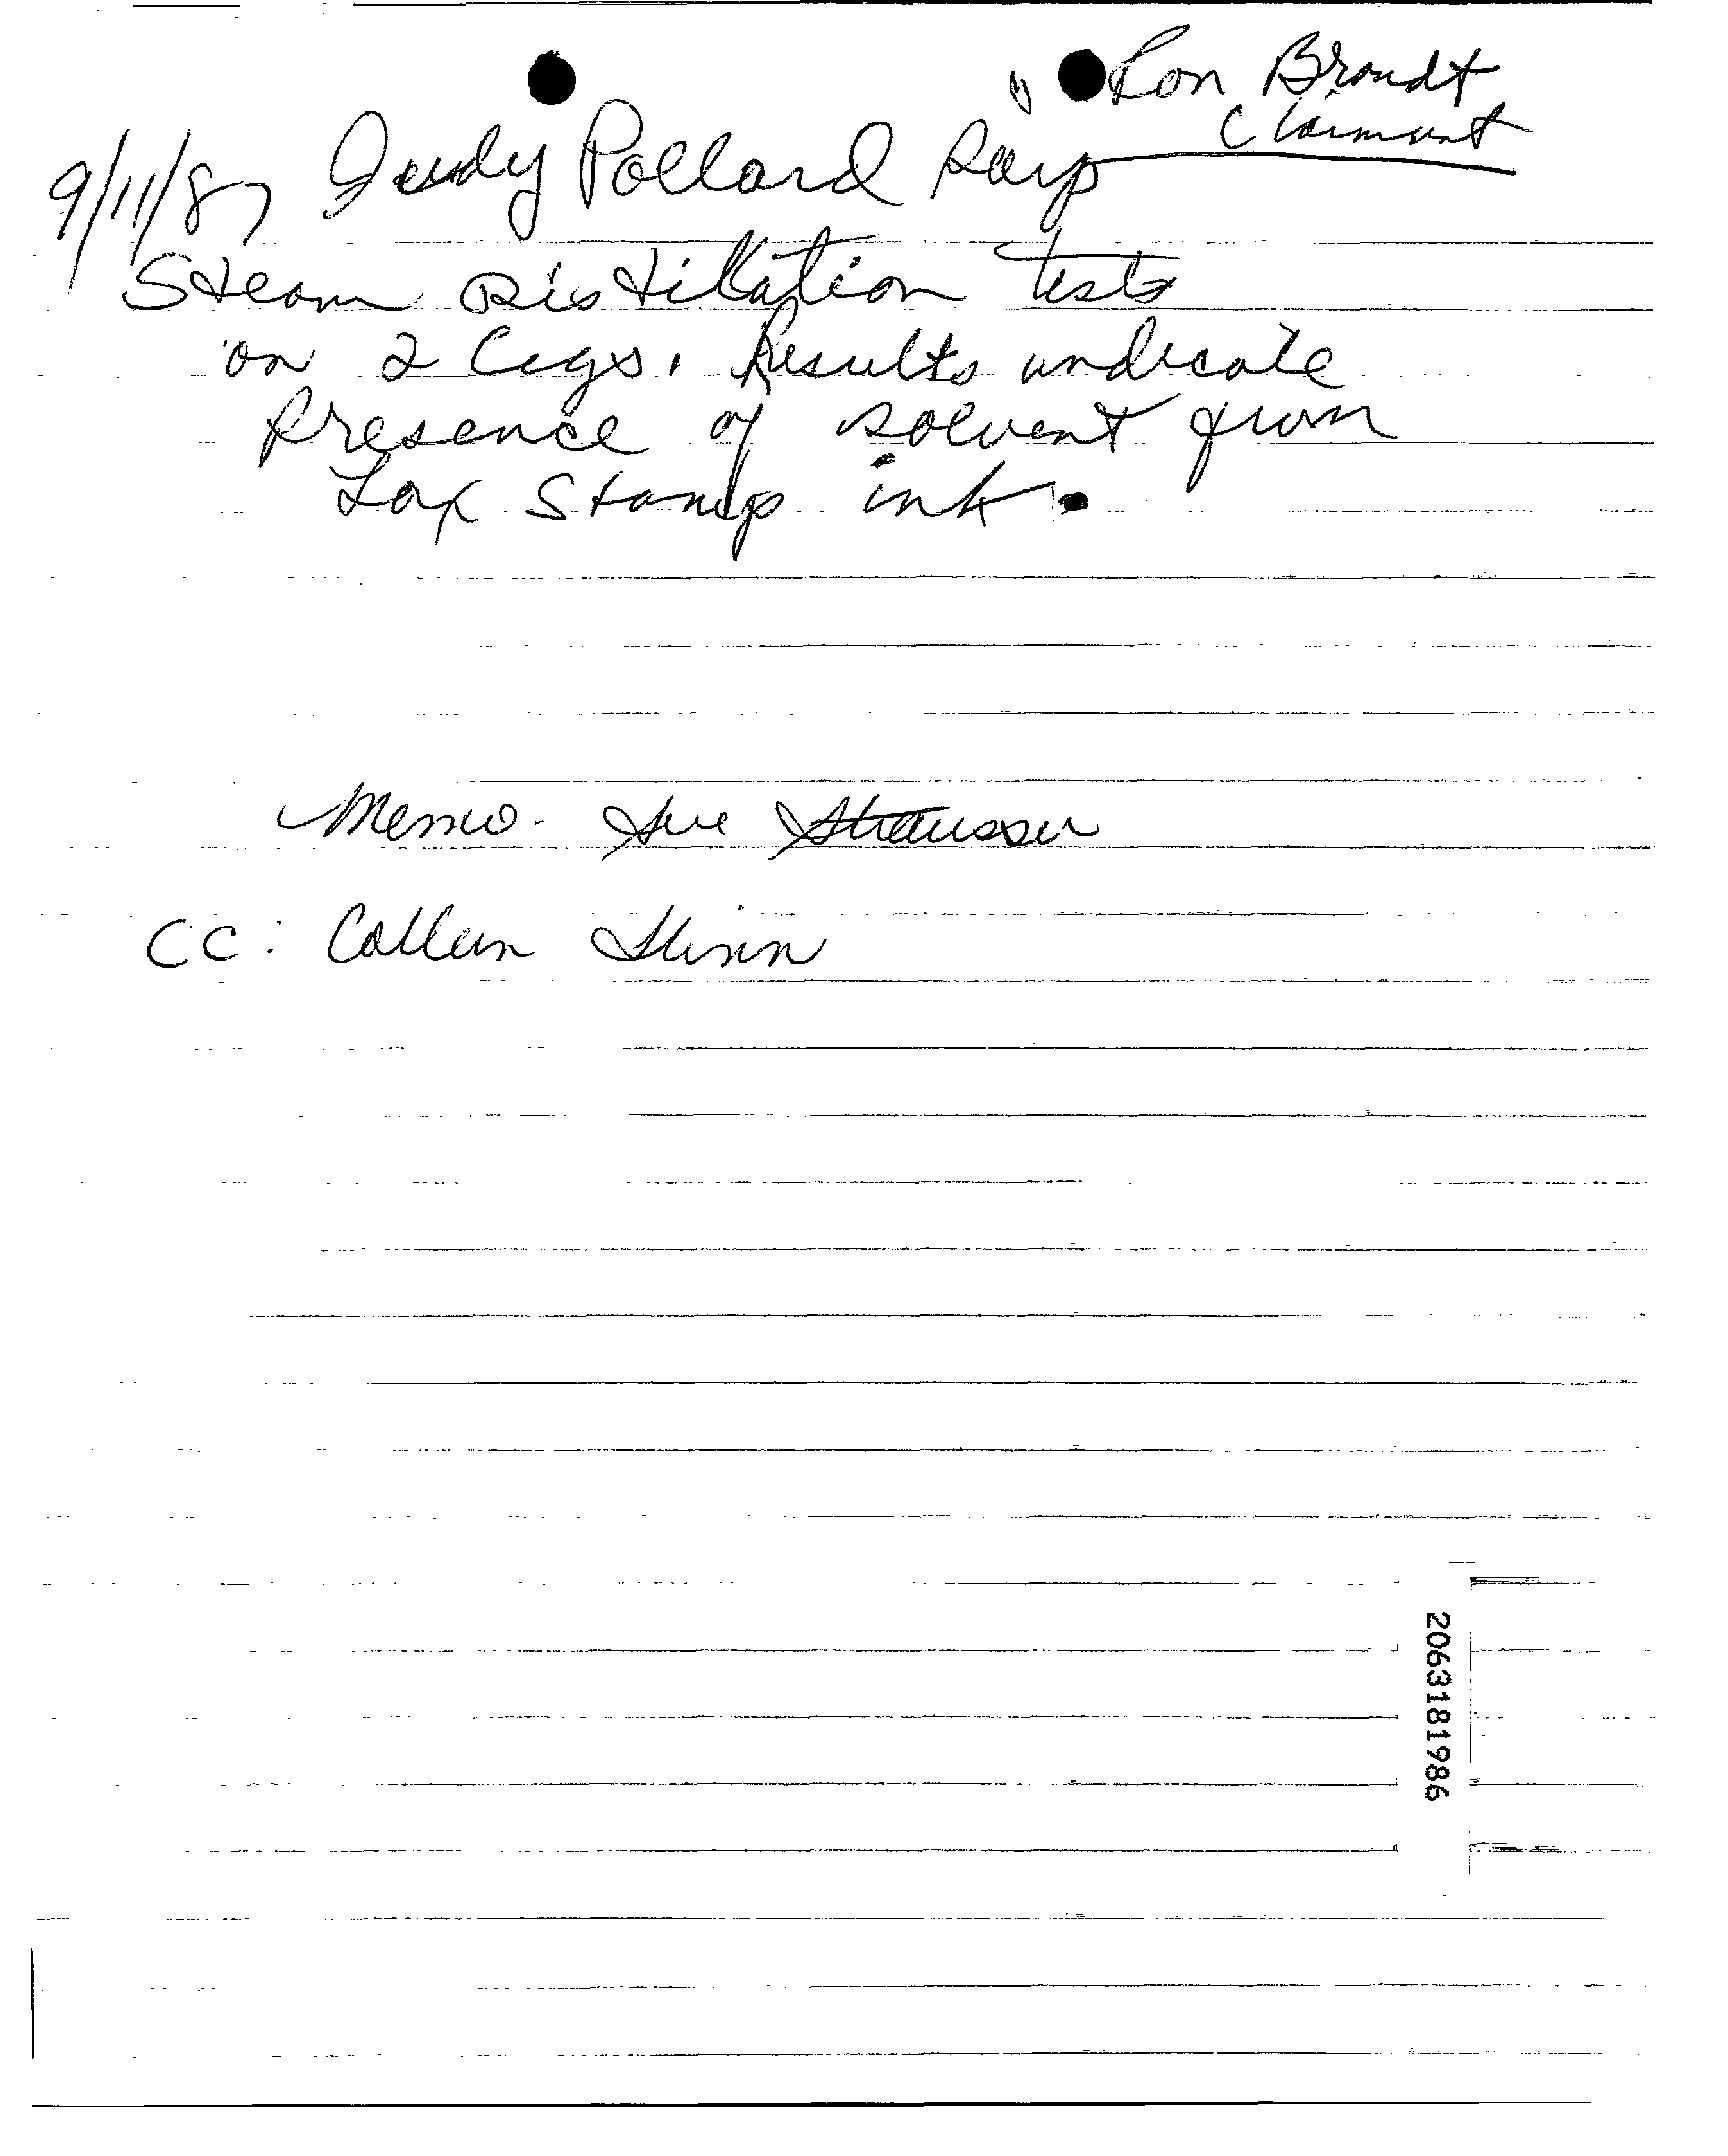 " Ron Brandt
Claimant
9/11/87 Judy Pollard says
Steam Distillation tests
on 2 Cigs. Results indicate
Presence of solvent from
tax Stamp ink.
Memo - Sue Strausser
CC: Colleen Flinn
2063181986